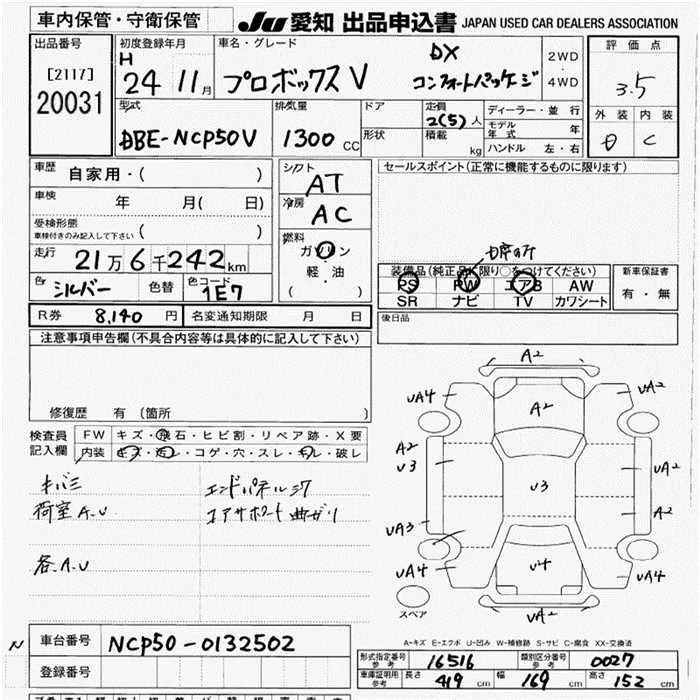 車内保管・守衛保管
JU 愛知 出品申込書 JAPAN USED CAR DEALERS ASSOCIATION
出品番号
[2117]
20031
初度登録年月
H
24 11月
車名・グレード
プロボックスV
DX
コンフォートパッケージ
2WD
・
4WD
評価点
3.5
外装 内装
C
型式
DBE-NCP50V
排気量
1300 CC
ドア
形状
定員
2(5)人
積載
kg
ディーラー・並行
モデル年式 年
ハンドル 左・右
車歴
自家用・( )
車検
年 月( 日)
受検形態
車検付きのみ記入して下さい ( )
走行
21万6千242km
色
シルバー
色替
色コード
1E7
シフト
AT
冷房
AC
燃料
ガソリン
軽・油
( )
セールスポイント(正常に機能するものに限ります)
装備品(純正品に限り○をつけてください)
PS PW エアB AW
SR ナビ TV カワシート
新車保証書
有・無
後日品
R券 8,140 円
名変通知期限 月 日
注意事項申告欄(不具合内容等は具体的に記入して下さい)
修復歴 有 (箇所 )
検査員
記入欄
FW キズ・飛石・ヒビ割・リペア跡・X要
内装 キズ・汚レ・コゲ・穴・スレ・キレ・破レ
キバミ
荷室A.U
各A.U
エンドパネルシワ
コアサポート曲ガリ
A2
UA4
A2
UA2
A2
U3
U3
UA2
A2
UA3
UA4
U4
UA4
UA2
スペア
A-キズ E-エクボ U-凹み W-補修跡 S-サビ C-腐食 XX-交換済
N
車台番号
NCP50-0132502
登録番号
形式指定番号
参考
16516
類別区分番号
参考
0027
車庫証明用
参考
長さ 419 cm
幅 169 cm
高さ 152 cm